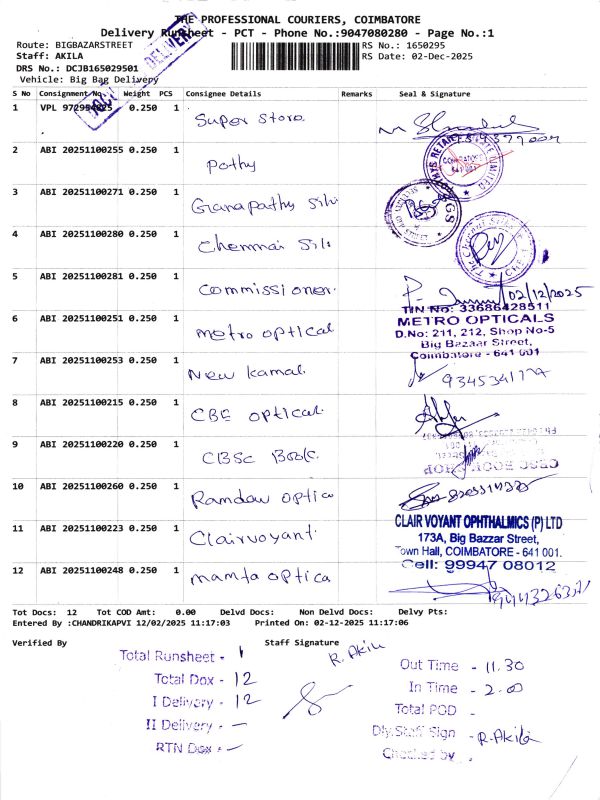 THE PROFESSIONAL COURIERS, COIMBATORE
Delivery Runsheet - PCT - Phone No.:9047080280 - Page No.:1
Route: BIGBAZARSTREET
RS No.: 1650295
Staff: AKILA
RS Date: 02-Dec-2025
DRS No.: DCJB165029501
Vehicle: Big Bag Delivery
DOCU DELIVERY
S No Consignment No. Weight PCS Consignee Details Remarks Seal & Signature
1 VPL 0.250 1 Super Store
2 ABI 20251100255 0.250 1 Pothy
3 ABI 20251100271 0.250 1 Ganapathy Silk
4 ABI 20251100280 0.250 1 Chennai Silk
5 ABI 20251100281 0.250 1 Commissioner 02/12/2025
TIN No: 33686428511
6 ABI 20251100251 0.250 1 metro optical METRO OPTICALS
D.No: 211, 212, Shop No-5
Big Bazaar Street,
Coimbatore - 641 001
7 ABI 20251100253 0.250 1 New Kamal
8 ABI 20251100215 0.250 1 CBE optical
9 ABI 20251100220 0.250 1 CBSC Book
CBSC BOOK SHOP
10 ABI 20251100260 0.250 1 Ramdev optica
11 ABI 20251100223 0.250 1 Clairvoyant
CLAIR VOYANT OPHTHALMICS (P) LTD
173A, Big Bazzar Street,
Town Hall, COIMBATORE - 641 001.
Cell: 99947 08012
12 ABI 20251100248 0.250 1 mamta optica
Tot Docs: 12 Tot COD Amt: 0.00 Delvd Docs: Non Delvd Docs: Delvy Pts:
Entered By :CHANDRIKAPVI 12/02/2025 11:17:03 Printed On: 02-12-2025 11:17:06
Verified By Staff Signature
R. Akila
Total Runsheet - 1
Total Dox - 12
I Delivery - 12
II Delivery - —
RTN Dox - —
Out Time - 11.30
In Time - 2.00
Total POD -
Dly.Staff Sign - R.Akila
Checked by